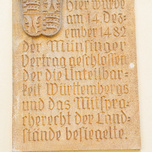 Hier wurde
am 14. Dez-
ember 1482
der Münsinger
Vertrag geschlossen
der die Unteilbar-
keit Württembergs
und das Mitspra-
cherecht der Land-
stände besiegelte.